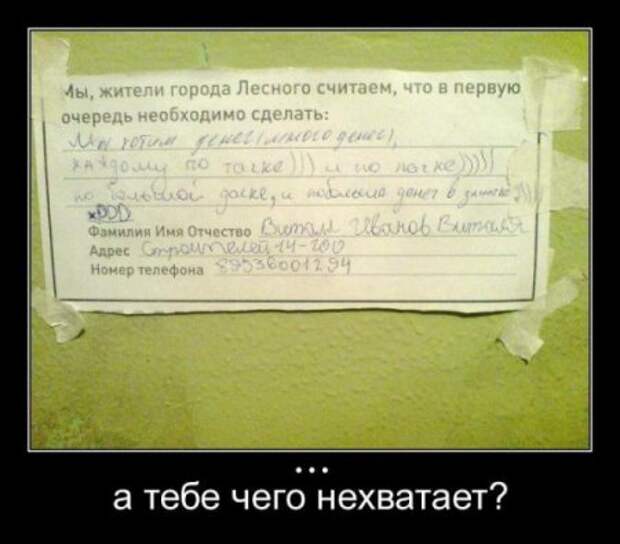 Мы, жители города Лесного считаем, что в первую
очередь необходимо сделать:
Мы хотим денег (много денег),
каждому по тачке))) и по пачке)))))
по большой доске, и побольше денег в
xDDD
Фамилия Имя Отчество Виталя Иванов Виталя
Адрес Строителей 14-200
Номер телефона 89536001294
...
а тебе чего нехватает?